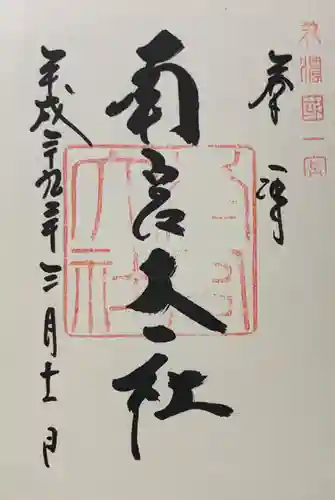 美濃國一宮
奉拝
南宮大社
平成二十九年三月十二日